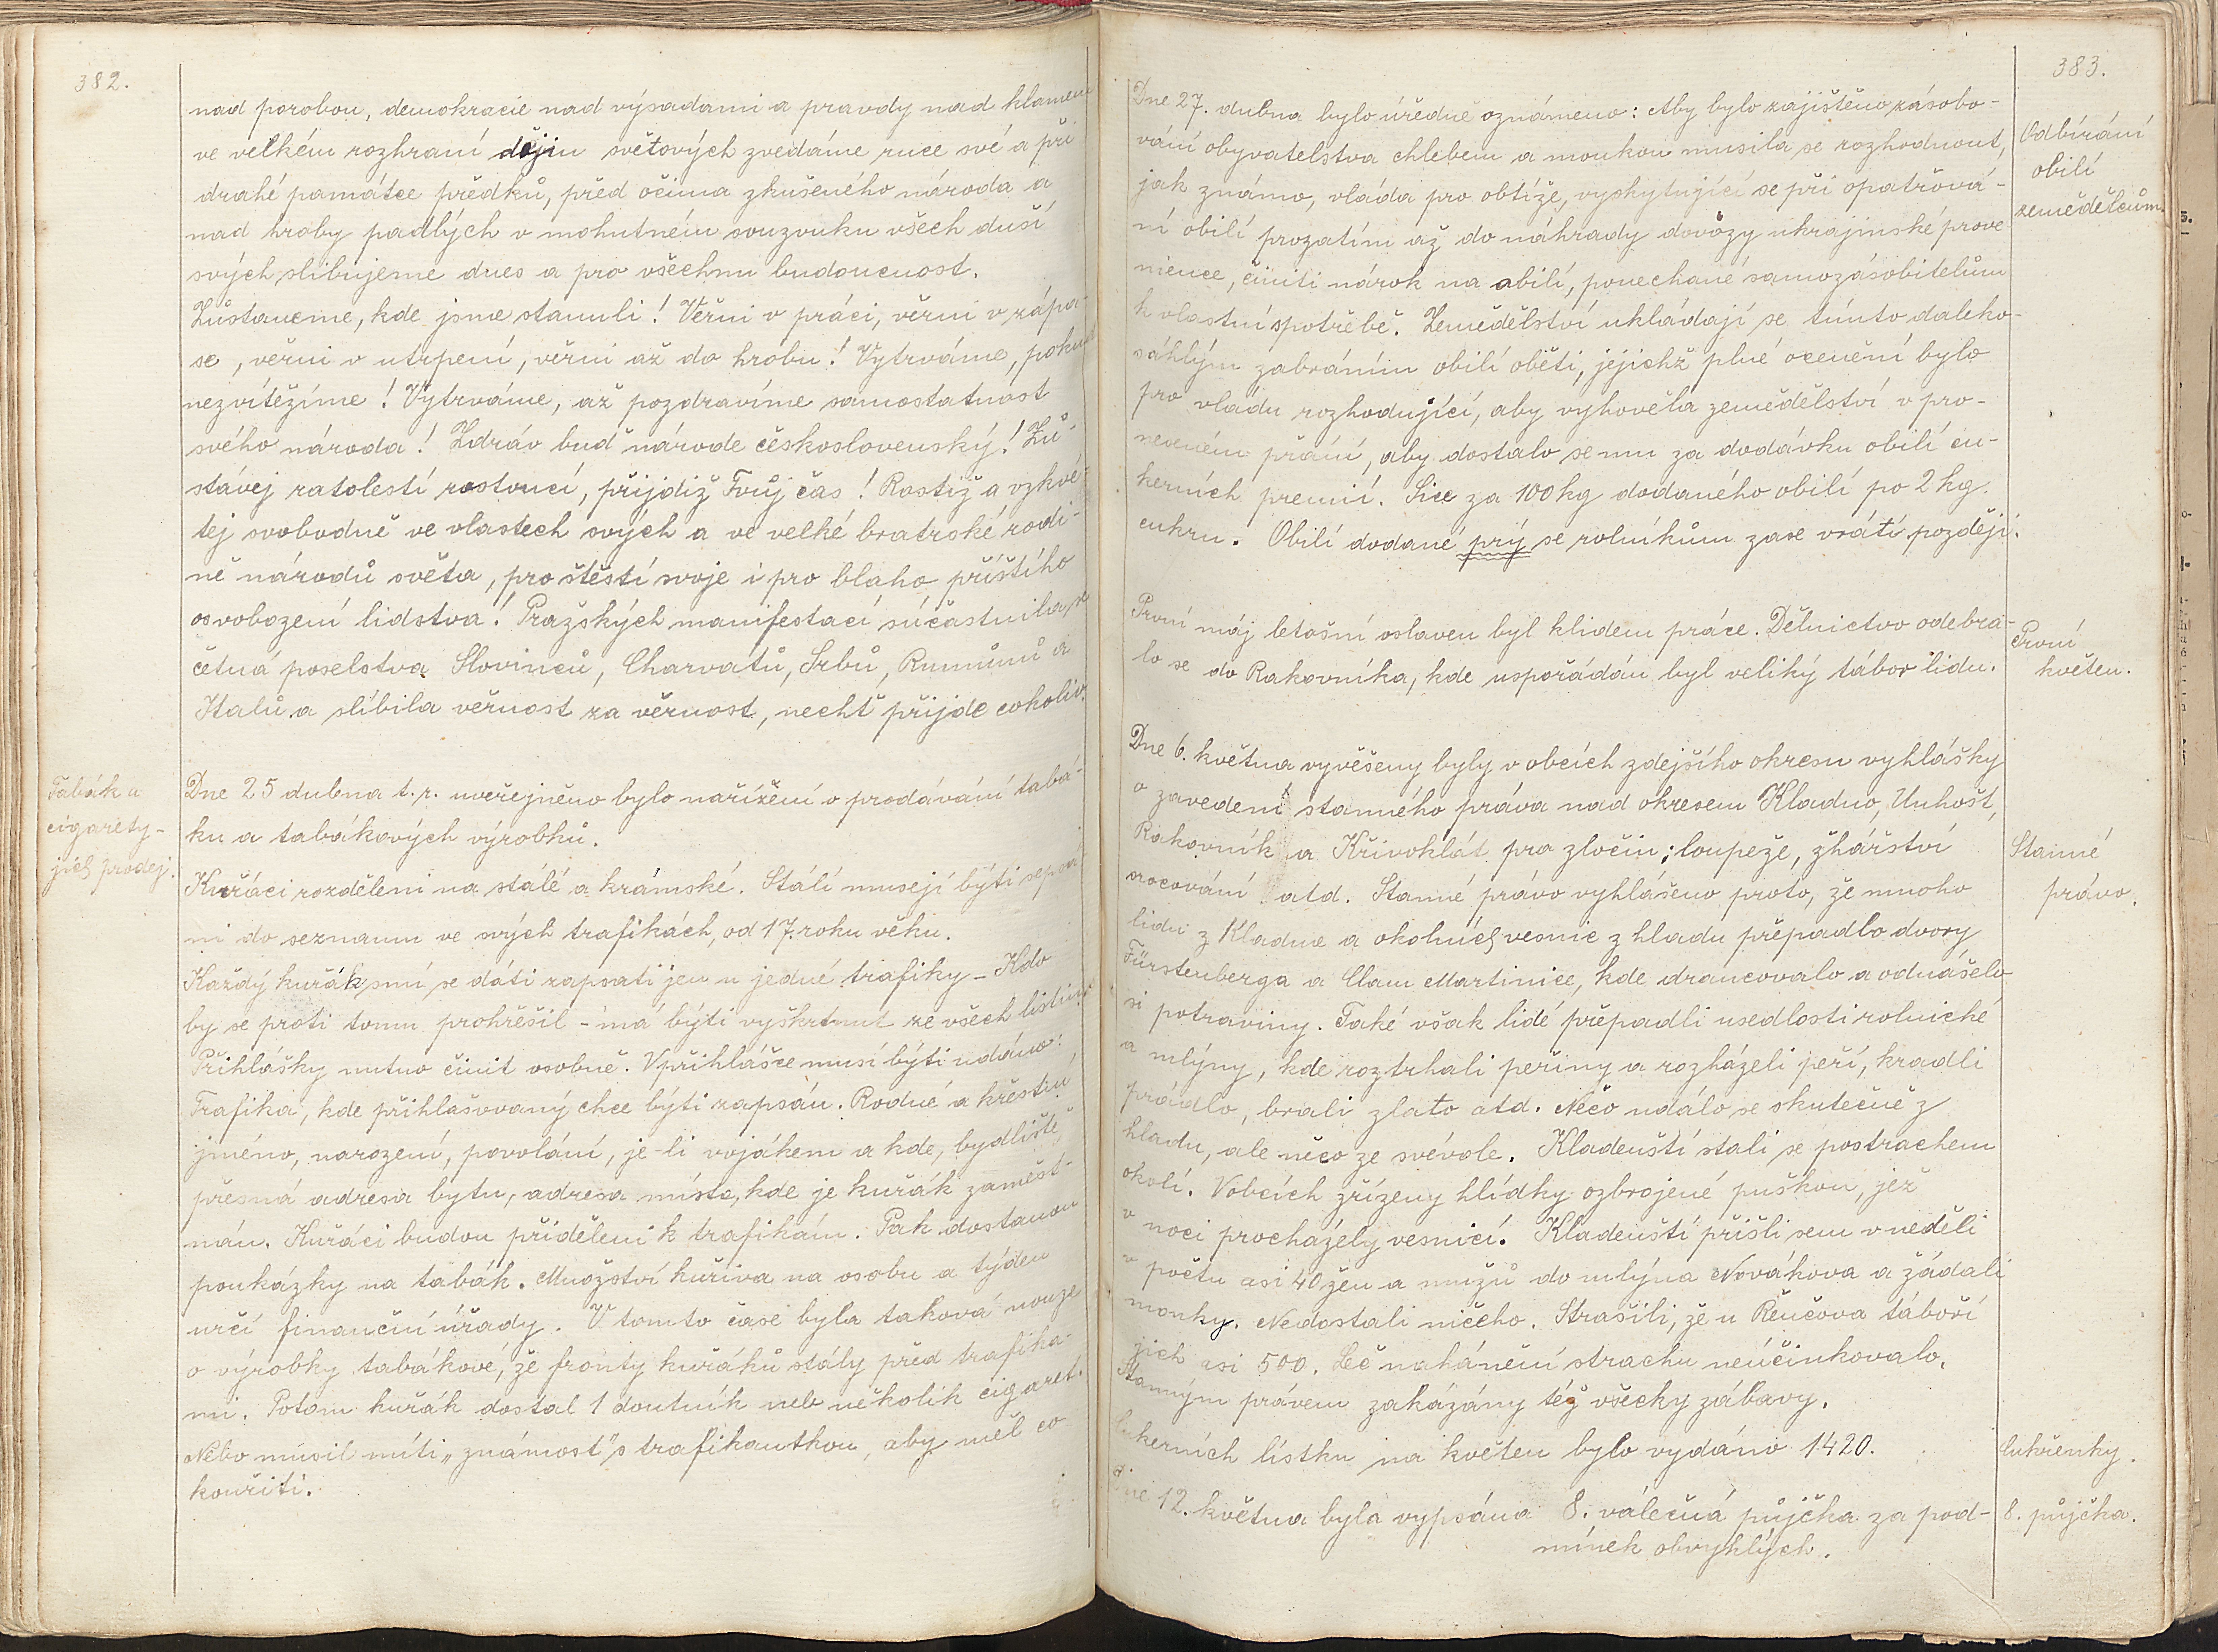 382.
nad porobou, demokracie nad výsadami a pravdy nad klamem
ve velkém rozhraní dějin světových zvedáme ruce své a při
drahé památce předků, před očima zkušeného národa a
nad hroby padlých v mohutném souzvuku všech duší
svých slibujeme dnes a pro všechnu budoucnost.
Zůstaneme, kde jsme stanuli! Věrni v práci, věrni v zápa-
se, věrni v utrpení, věrni až do hrobu! Vytrváme, pokud
nezvítězíme! Vytrváme, až pozdravíme samostatnost
svého národa! Zdráv buď národe československý! Zů-
stávej ratolestí rostoucí, přijdiž Tvůj čas! Rostiž a vzkvé-
tej svobodně ve vlastech svých a ve velké bratrské rodi-
ně národů světa, pro štěstí svoje i pro blaho příštího
osvobození lidstva! Pražských manifestací súčastnila se
četná poselstva Slovinců, Charvatů, Srbů, Rumunů a
Italů a slíbila věrnost za věrnost, nechť přijde cokoliv.
Tabák a
cigarety-
jich prodej.
Dne 25 dubna t.r. uveřejněno bylo nařízení o prodávání tabá-
ku a tabákových výrobků.
Kuřáci rozděleni na stálé a krámské. Stálí musejí býti sepsá-
ni do seznamu ve svých trafikách, od 17. roku věku.
Každý kuřák smí se dáti zapsati jen u jedné trafiky - Kdo
by se proti tomu prohřešil - má býti vyškrtnut ze všech listin.
Přihlášky nutno činit osobně. V přihlášce musí býti udáno:
Trafika, kde přihlašovaný chce býti zapsán. Rodné a křestní
jméno, narození, povolání, je-li vojákem a kde, bydliště,
přesná adresa bytu, adresa místa, kde je kuřák zaměst-
nán. Kuřáci budou přiděleni k trafikám. Pak dostanou
poukázky na tabák. Množství kuřiva na osobu a týden
určí finanční úřady. V tomto čase byla taková nouze
o výrobky tabákové, že fronty kuřáků stály před trafika-
mi. Potom kuřák dostal 1 doutník neb několik cigaret.
Nebo musil míti „známost" s trafikantkou, aby měl co
kouřiti.
383.
Dne 27. dubna bylo úředně oznámeno: Aby bylo zajištěno zásobo-
vání obyvatelstva chlebem a moukou musila se rozhodnout,
jak známo, vláda pro obtíže, vyskytující se při opatřová-
ní obilí prozatím až do náhrady dovozy ukrajinské prove-
nience, činiti nárok na obilí, ponechané samozásobitelům
k vlastní spotřebě. Zemědělství ukládají se tímto daleko-
sáhlým zabráním obilí oběti, jejichž plné ocenění bylo
pro vládu rozhodující, aby vyhověla zemědělství v pro-
neseném přání, aby dostalo se mu za dodávku obilí cu-
kerních premií. Sice za 100 kg dodaného obilí po 2 kg.
cukru. Obilí dodané prý se rolníkům zase vrátí později.
Odbírání
obilí
zemědělcům.
První máj letošní oslaven byl klidem práce. Dělnictvo odebra-
lo se do Rakovníka, kde uspořádán byl veliký tábor lidu.
První
květen.
Dne 6. května vyvěšeny byly v obcích zdejšího okresu vyhlášky
o zavedení stanného práva nad okresem Kladno, Unhošť,
Rakovník a Křivoklát pro zločin; loupeže, žhářství
srocování atd. Stanné právo vyhlášeno proto, že mnoho
lidu z Kladna a okolních vesnic z hladu přepadlo dvory
Fürstenberga a Clam Martinice, kde drancovalo a odnášelo
si potraviny. Také však lidé přepadli usedlosti rolnické
a mlýny, kde roztrhali peřiny a rozházeli peří, kradli
prádlo, brali zlato atd. Něco událo se skutečně z
hladu, ale něco ze svévole. Kladenští stali se postrachem
okolí. V obcích zřízeny hlídky ozbrojené puškou, jež
v noci procházely vesnicí. Kladenští přišli sem v neděli
v počtu asi 40 žen a mužů do mlýna Novákova a žádali
mouky. Nedostali ničeho. Strašili, že u Řenčova táboří
jich asi 500. Leč nahánění strachu neúčinkovalo.
Stanným právem zakázány též všecky zábavy.
Stanné
právo.
Cukerních lístku na květen bylo vydáno 1420.
Cukřenky.
Dne 12. května byla vypsána 8. válečná půjčka za pod-
mínek obvyklých.
8. půjčka.